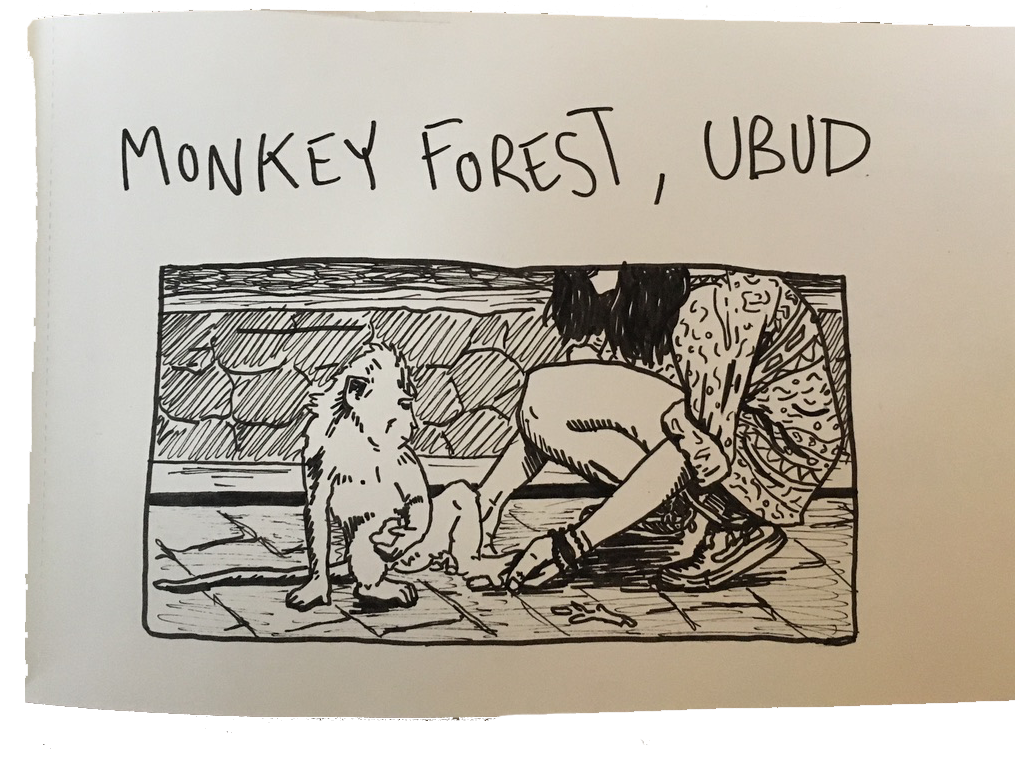 MONKEY FOREST, UBUD